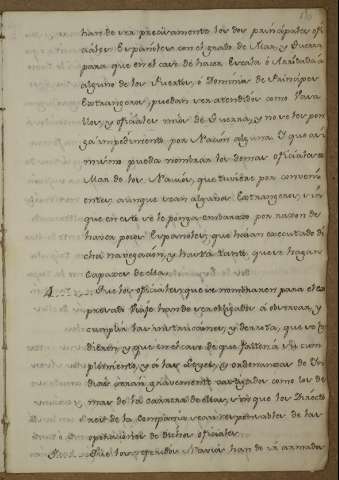 han de ser precisamente los dos principales ofi
ciales Españoles con el grado de Mar, y Guerra
para que en el caso de hacer Escala ó Arribada á
alguno de los Puertos, ó Dominios de Principes
Extrangeros, puedan ser atendidos como Tava
llos, y oficiales mios de Guerra, y no se les pon
ga impedimento por Nacion alguna. Y que asi
mismo pueda nombrar los demas oficiales de
Mar de los Navios, que tuviere por conveni
ente, aunque sean algunos Extrangeros, sin
que en esto se le ponga embarazo por razon de
haver pocos Españoles, que haian executado di
cha navegacion, y hasta tanto, que se hagan
capaces de ella.
4 Que los oficiales, que se nombraren para el ex
presado Viaje han de ser obligados á observar, y
cumplir las instrucciones, y derrota, que se les
dieren, y que en el caso de que falten á su cum
plimiento, y á las Leyes, y ordenanzas de Yn
dias seran gravemente castigados como los de
mas de la carrera de ellas, sin que los Directo
res de la Compañia sean responsables de las
operaciones de dichos oficiales.
Que los referidos Navios han de ir armados